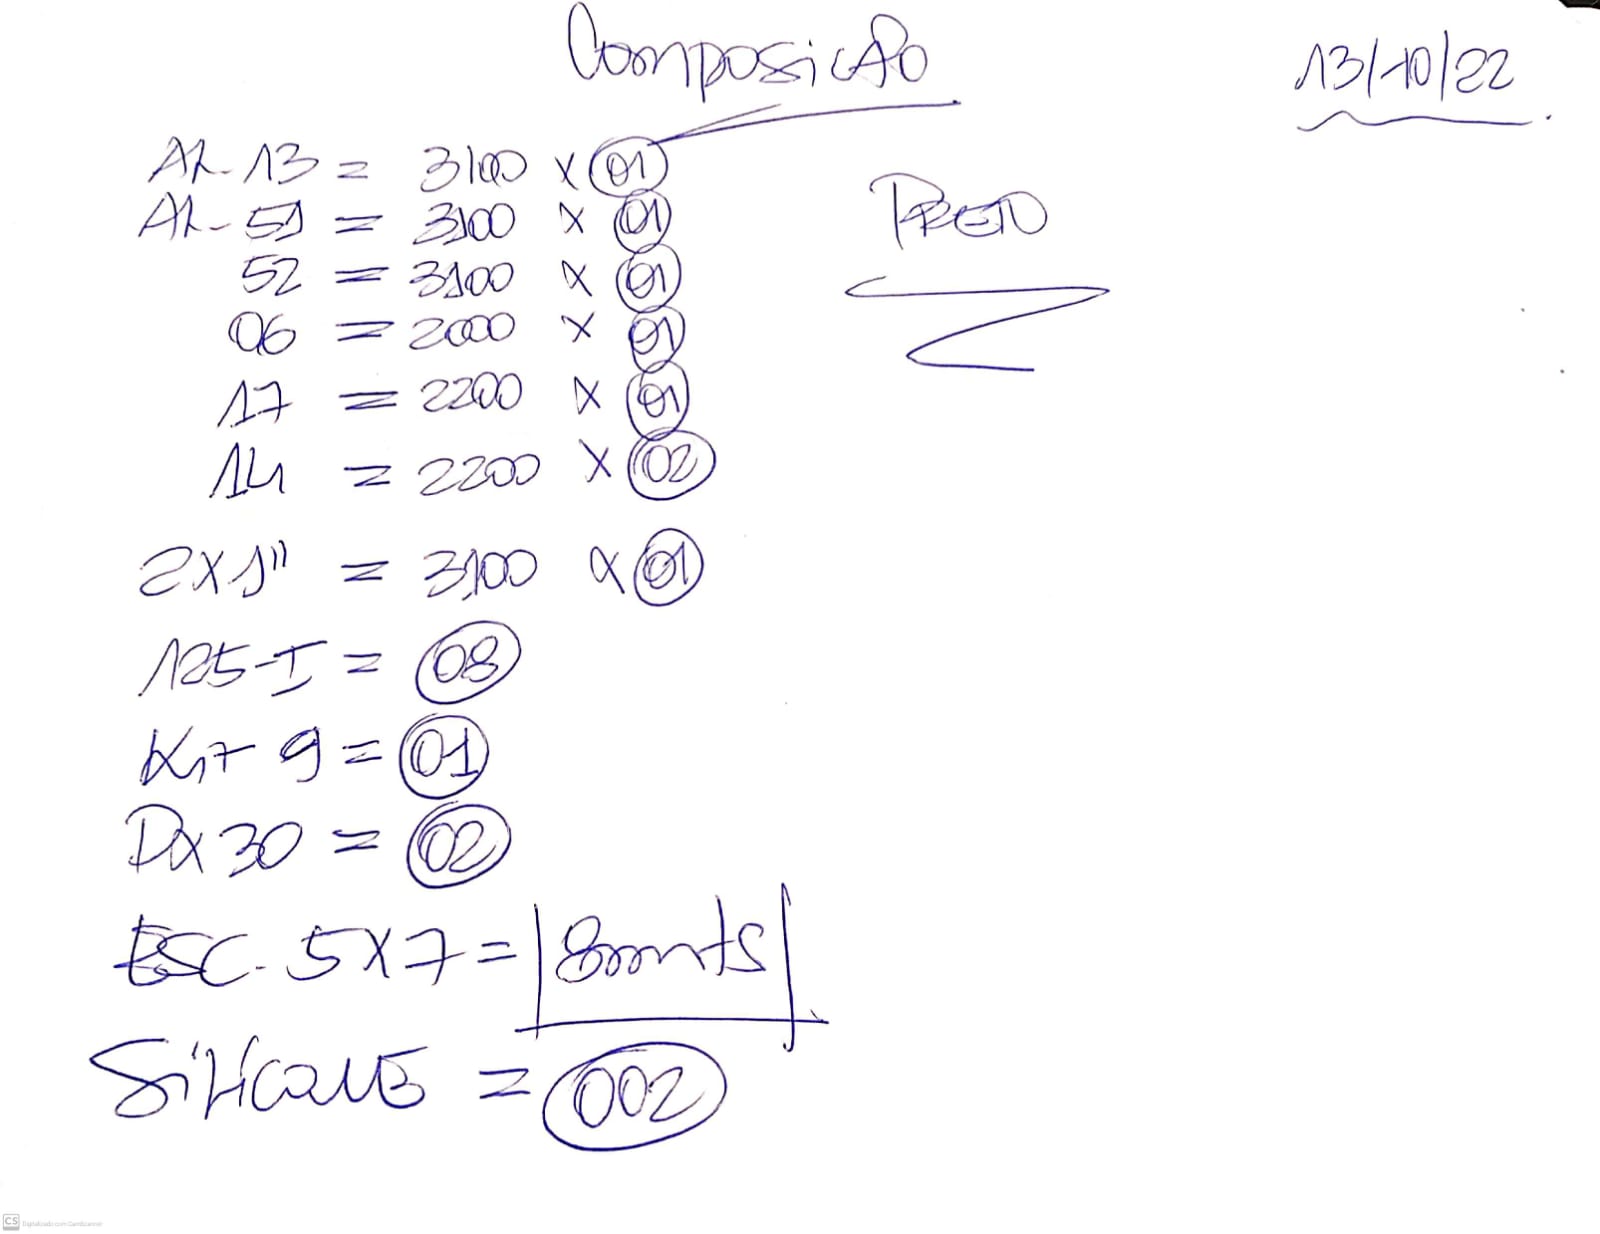 Composição
13/10/22
AL-13 = 3100 x 01
AL-51 = 3100 x 01
52 = 3100 x 01
06 = 2000 x 01
17 = 2200 x 01
14 = 2200 x 02
2x1" = 3100 x 01
125-I = 08
Kit 9 = 01
Dx 30 = 02
ESC. 5x7 = 8mts
Silicone = 002
CS Digitalizado com CamScanner